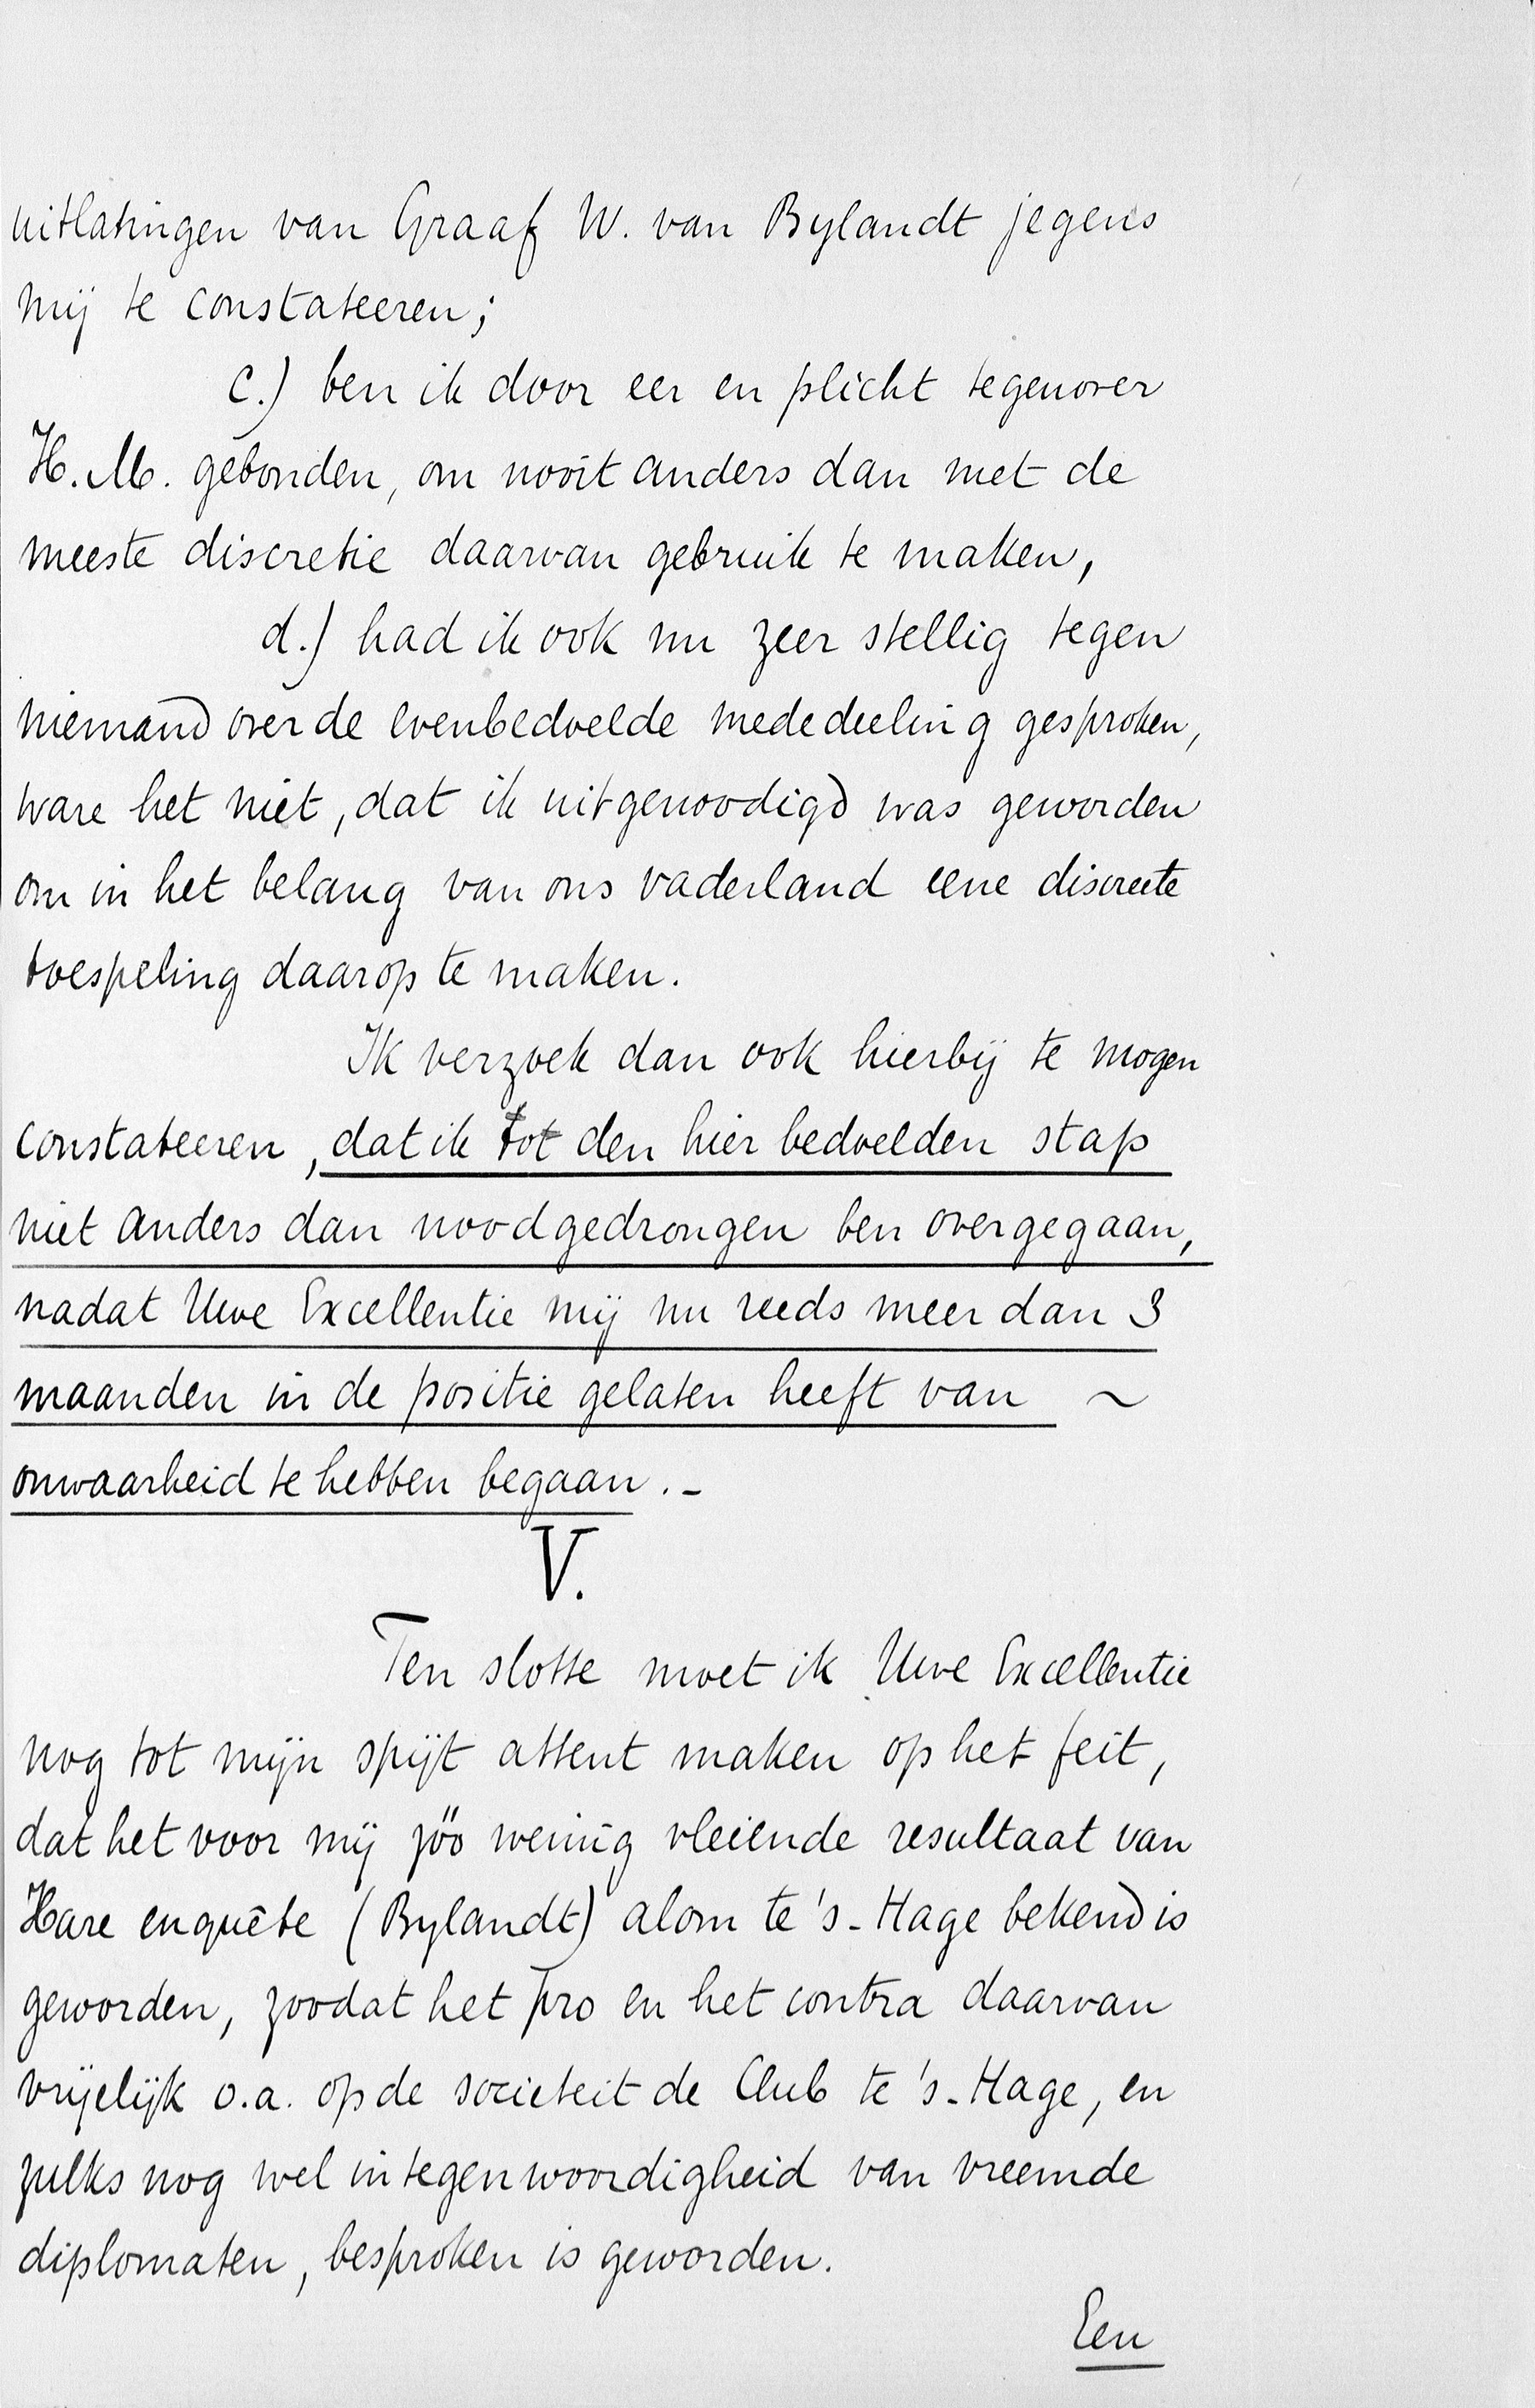 uitlatingen van Graaf W. van Bylandt jegens
mij te constateeren;
c.) ben ik door eer en plicht tegenover
H.M. gebonden, om nooit anders dan met de
meeste discretie daarvan gebruik te maken,
d.) had ik ook nu zeer stellig tegen
niemand over de evenbedoelde mededeeling gesproken,
ware het niet, dat ik uitgenoodigd was geworden
om in het belang van ons vaderland eene discrete
toespeling daarop te maken.
Ik verzoek dan ook hierbij te mogen
constateeren, dat ik tot den hier bedoelden stap
niet anders dan noodgedrongen ben overgegaan,
nadat Uwe Excellentie mij nu reeds meer dan 3
maanden in de positie gelaten heeft van ~
onwaarheid te hebben begaan. -
V.
Ten slotte moet ik Uwe Excellentie
nog tot mijn spijt attent maken op het feit,
dat het voor mij zóó weinig vleiende resultaat van
Hare enquête (Bylandt) alom te 's-Hage bekend is
geworden, zoodat het pro en het contra daarvan
vrijelijk o.a. op de societeit de Club te 's-Hage, en
zulks nog wel in tegenwoordigheid van vreemde
diplomaten, besproken is geworden.
Een